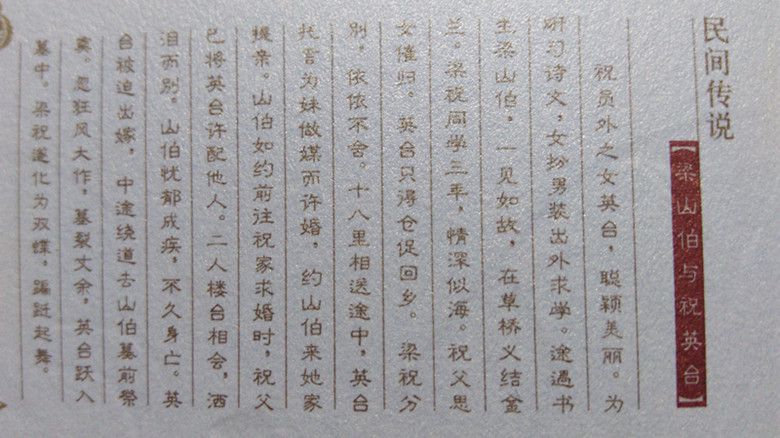 民间传说
【梁山伯与祝英台】
祝员外之女英台，聪颖美丽。为
研习诗文，女扮男装出外求学。途遇书
生梁山伯，一见如故，在草桥义结金
兰。梁祝同学三年，情深似海。祝父思
女催归。英台只得仓促回乡。梁祝分
别，依依不舍。十八里相送途中，英台
托言为妹做媒而许婚，约山伯来她家
提亲。山伯如约前往祝家求婚时，祝父
已将英台许配他人。二人楼台相会，洒
泪而别。山伯忧郁成疾，不久身亡。英
台被迫出嫁，中途绕道去山伯墓前祭
奠。忽狂风大作，墓裂丈余，英台跃入
墓中。梁祝遂化为双蝶，蹁跹起舞。